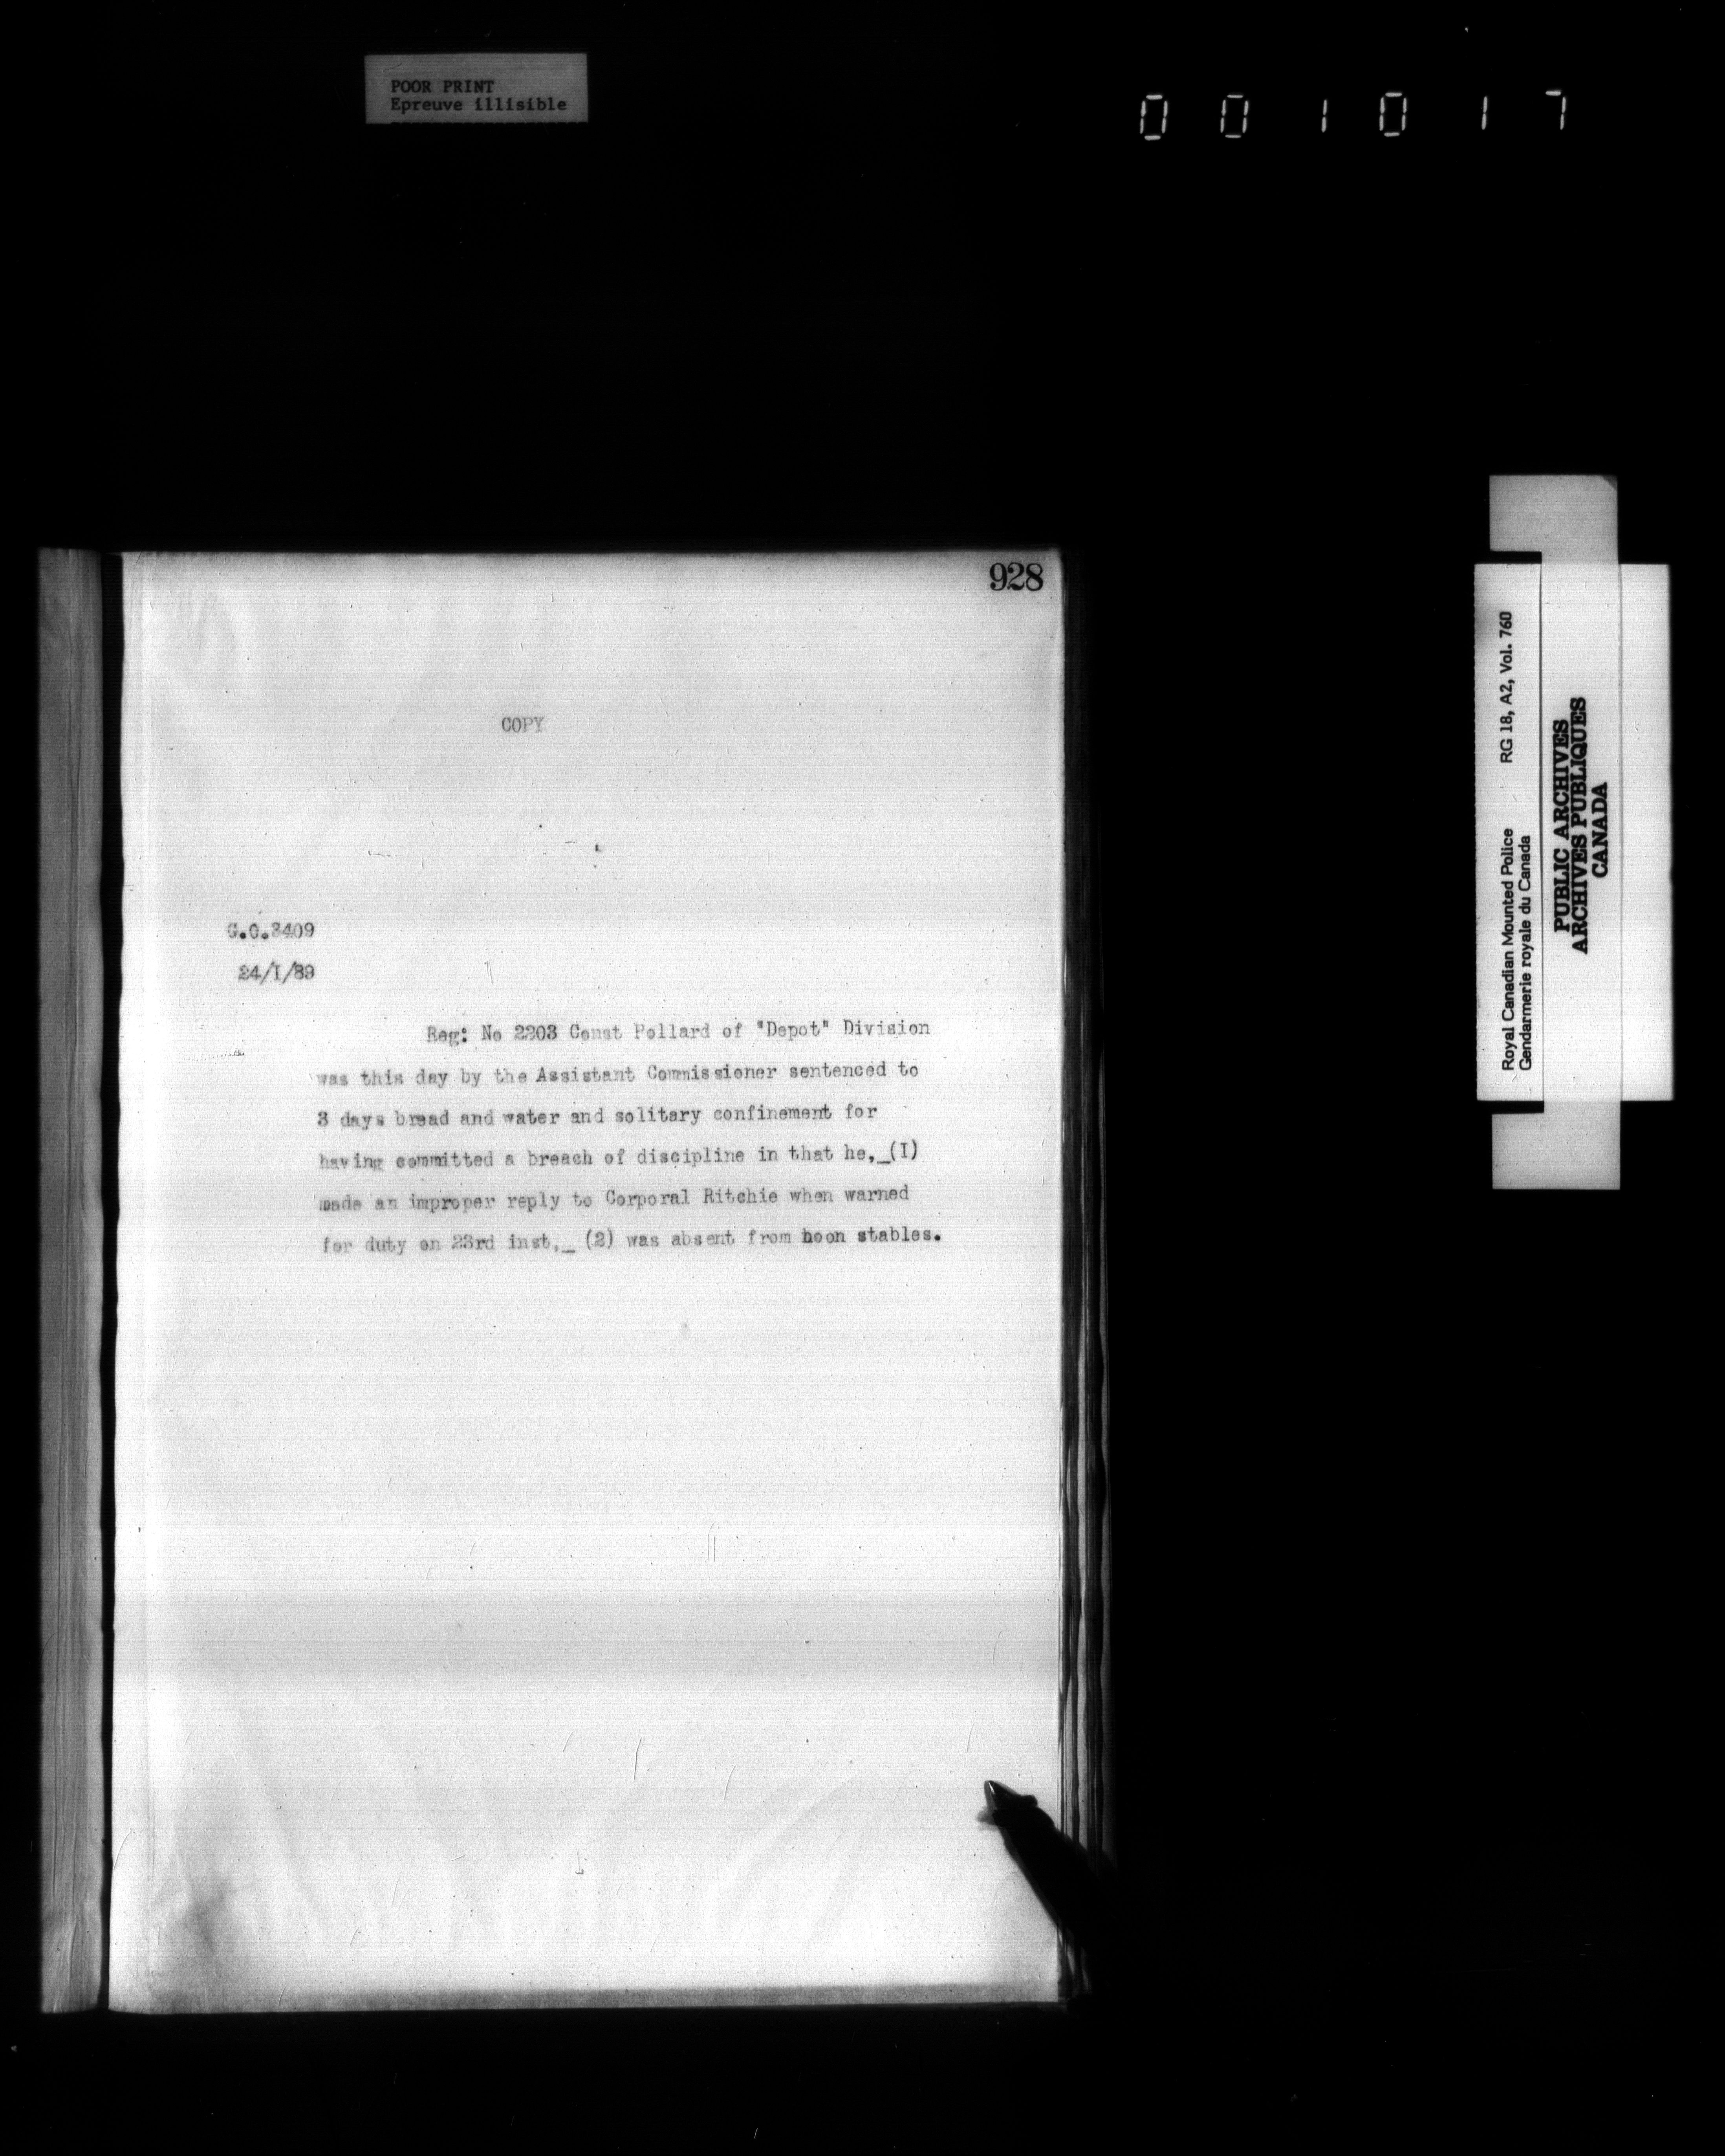 POOR PRINT
Epreuve illisible
001017
928
COPY
G.O.3409
24/I/89
Reg: No 2203 Const Pollard of "Depot" Division
was this day by the Assistant Commissioner sentenced to
3 days bread and water and solitary confinement for
having committed a breach of discipline in that he,_(I)
made an improper reply to Corporal Ritchie when warned
for duty on 23rd inst,_ (2) was absent from noon stables.
Royal Canadian Mounted Police RG 18, A2, Vol. 760
Gendarmerie royale du Canada
PUBLIC ARCHIVES
ARCHIVES PUBLIQUES
CANADA